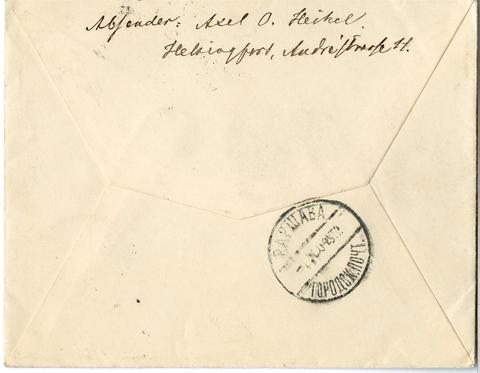 Absender: Axel O. Heikel.
Helsingfors, Andréstrasse 11.
ВАРШАВА
ГОРОДСК.ПОЧТ.